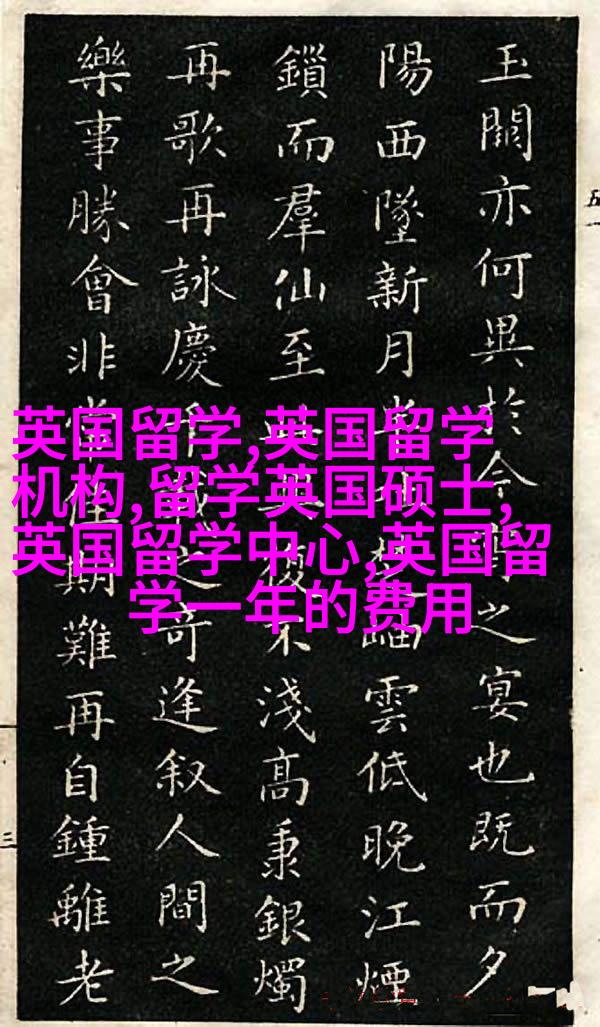 玉闕亦何異於今之宴也既而夕
陽西墜新月雲低晚江煙
鎖而羣仙至不淺高秉銀燭
再歌再詠慶千載之奇逢叙人間之
樂事勝會非常佳期難再自鍾離老
英国留学,英国留学
机构,留学英国硕士,
英国留学中心,英国留
学一年的费用